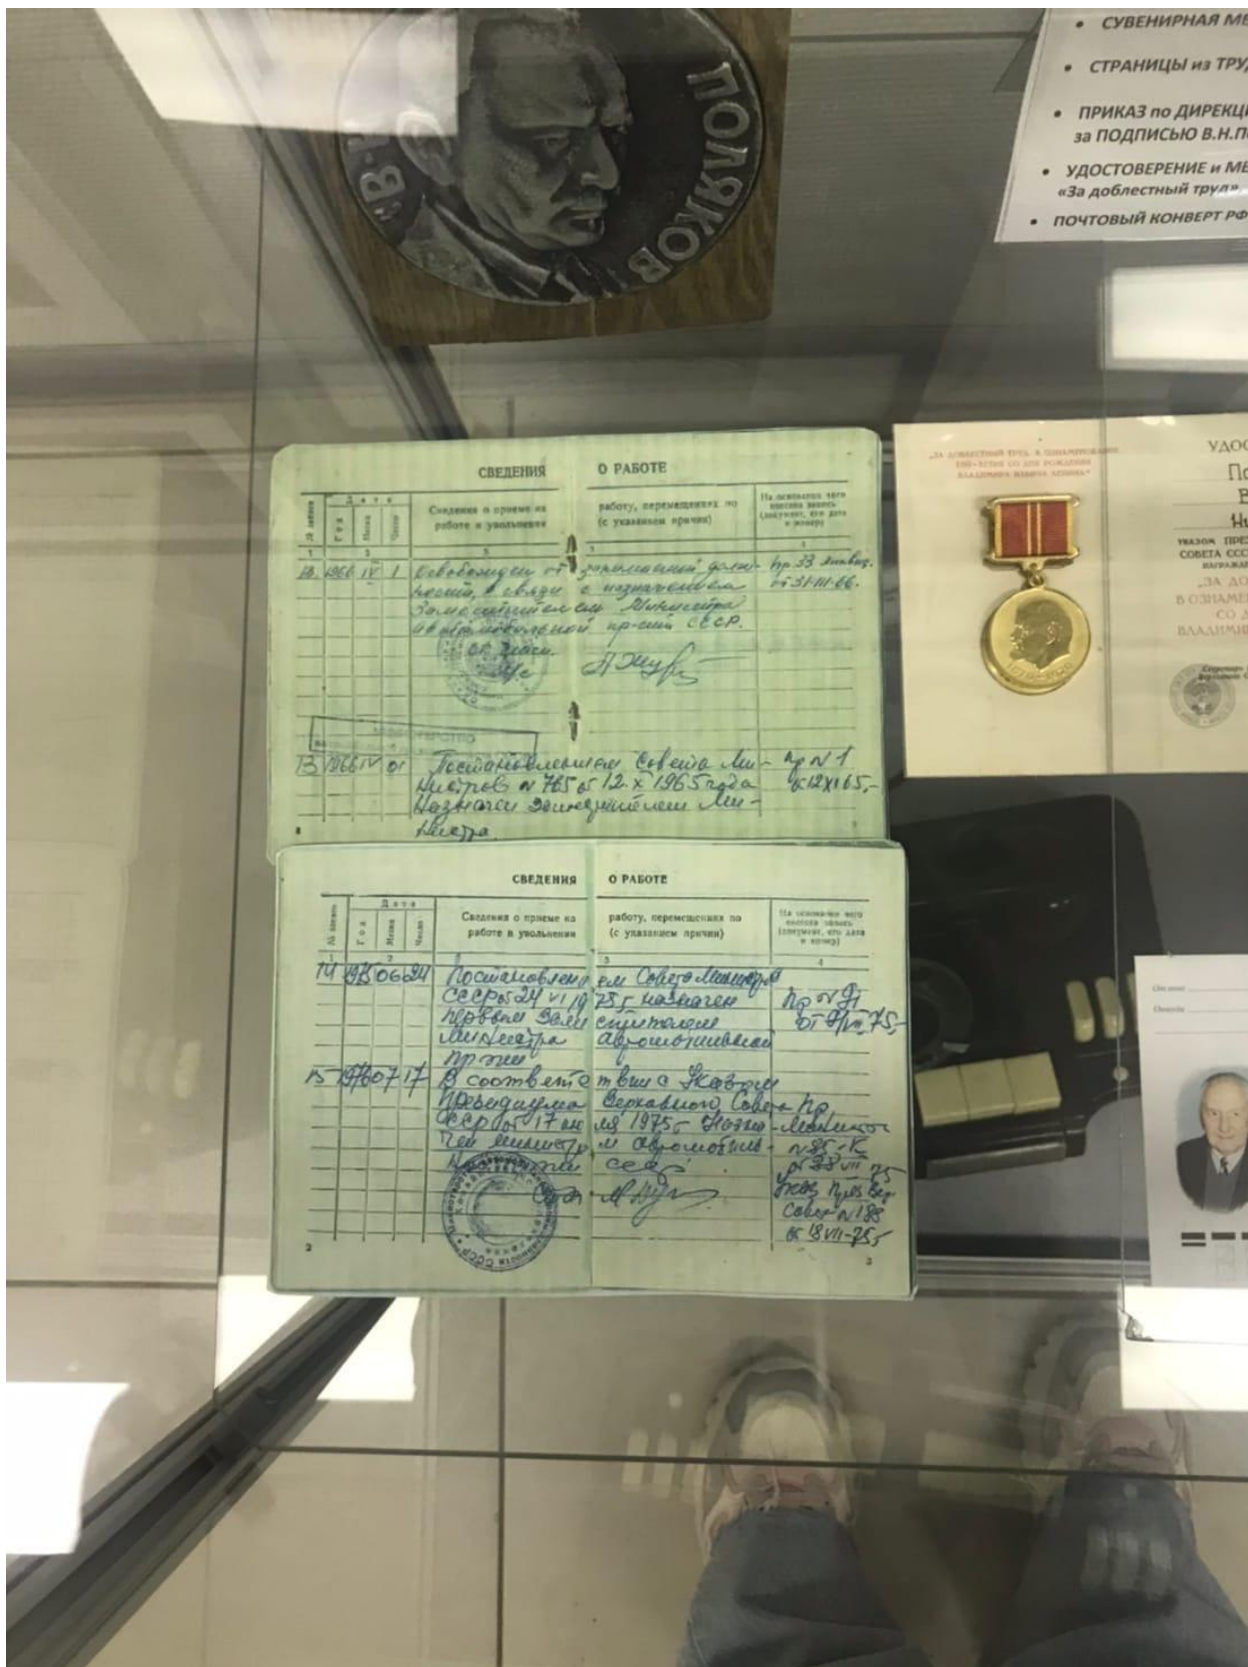 В.Н. ПОЛЯКОВ
• СУВЕНИРНАЯ МЕ
• СТРАНИЦЫ из ТРУД
• ПРИКАЗ по ДИРЕКЦИ
за ПОДПИСЬЮ В.Н.ПО
• УДОСТОВЕРЕНИЕ и МЕ
«За доблестный труд»
• ПОЧТОВЫЙ КОНВЕРТ РФ
СВЕДЕНИЯ О РАБОТЕ
№ записи
Дата
Год
Месяц
Число
Сведения о приеме на работу, перемещениях по
работе и увольнении (с указанием причин)
На основании чего
внесена запись
(документ, его дата
и номер)
1 2 3 3 4
1966 IV 1 Освобожден от занимаемой долж-
ности, в связи с назначением
Заместителем Министра
автомобильной пр-сти СССР.
Пр 33
от 31-III-66.
13 1966 IV 01 Постановлением Совета Ми-
нистров № 765 от 12.X 1965 года
назначен заместителем Ми-
нистра.
пр № 1
8
СВЕДЕНИЯ О РАБОТЕ
№ записи
Дата
Год
Месяц
Число
Сведения о приеме на работу, перемещениях по
работе и увольнении (с указанием причин)
На основании чего
внесена запись
(документ, его дата
и номер)
1 2 3 4
14 1975 06 24 Постановлением Совета Министров
СССР от 24 VI 1975 г назначен
первым заместителем
министра автомобильной
Пр № 91
15 07 17 В соответствии с Указом
Президиума Верховного Совета
СССР от 17 июля 1975 г назна-
чен министром автомобиль-
ной СССР
Указ През Вер
Совета № 188
от 18 VII-75 г
2 3
„ЗА ДОБЛЕСТНЫЙ ТРУД. В ОЗНАМЕНОВАНИЕ
100-ЛЕТИЯ СО ДНЯ РОЖДЕНИЯ
ВЛАДИМИРА ИЛЬИЧА ЛЕНИНА"
1870-1970
УДОС
По
В
Ни
УКАЗОМ ПРЕЗ
СОВЕТА ССС
НАГРАЖДЕ
„ЗА ДО
В ОЗНАМЕ
СО Д
ВЛАДИМИ
От кого
Откуда